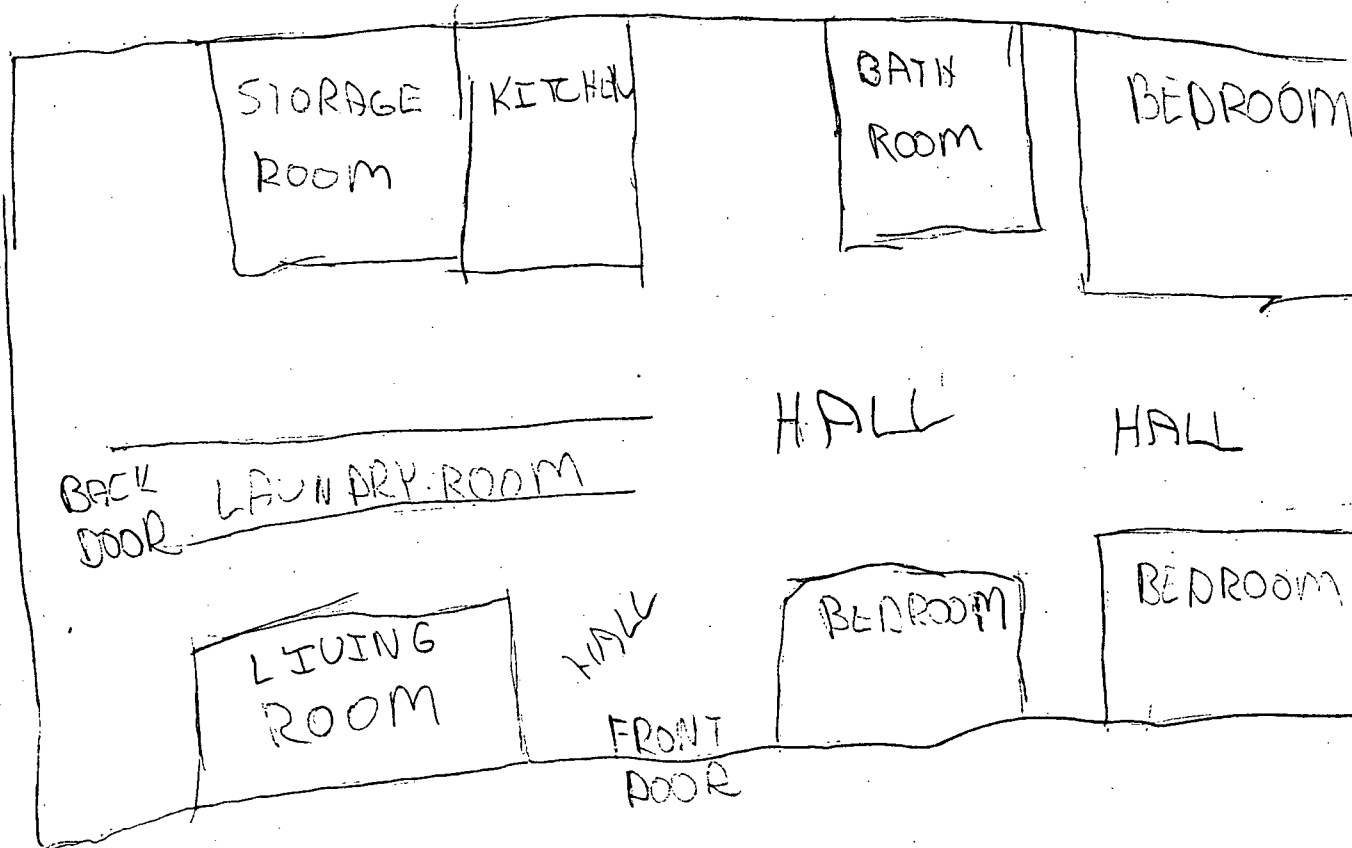 STORAGE
ROOM
KITCHEN
BATH
ROOM
BEDROOM
HALL
HALL
BACK
DOOR
LAUNDRY ROOM
LIVING
ROOM
HALL
FRONT
DOOR
BEDROOM
BEDROOM